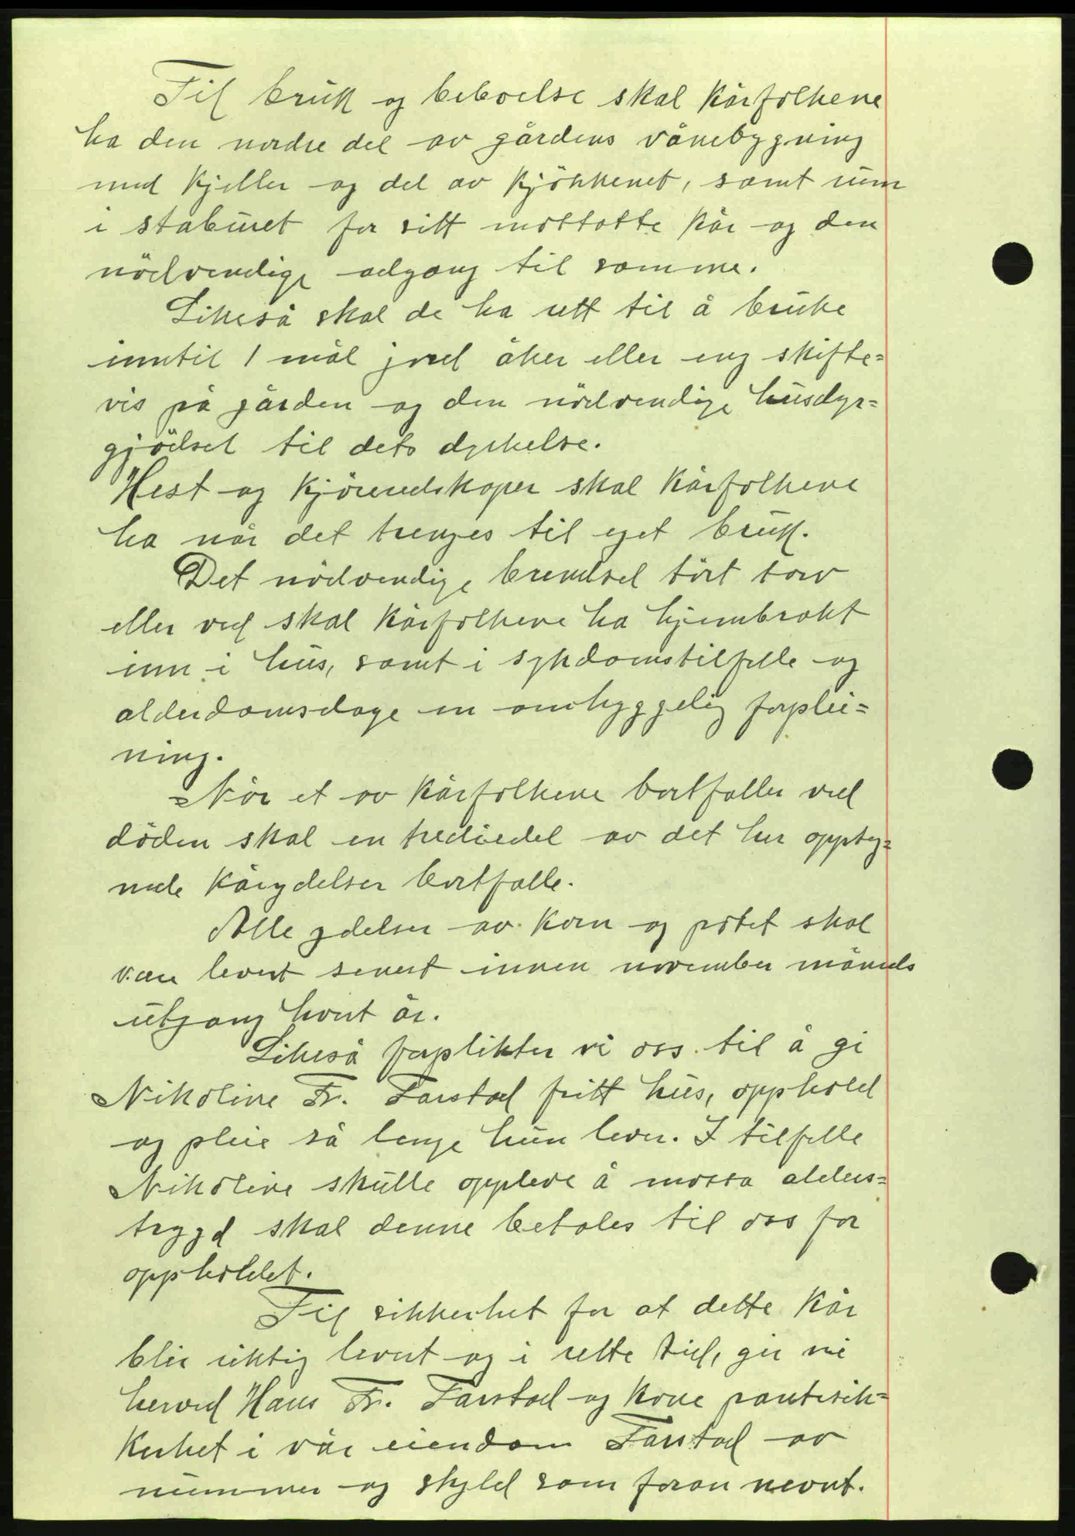 Til bruk og beboelse skal kårfolkene
ha den nordre del av gårdens vånebygning
med kjeller og del av kjökkenet, samt rum
i staburet for sitt mottatte kår og den
nödvendige adgang til samme.
Likeså skal de ha rett til å bruke
inntil 1 mål jord åker eller eng skifte=
vis på gården og den nödvendige husdyr=
gjödsel til dets dyrkelse.
Hest og kjöreredskaper skal kårfolkene
ha når det trenges til eget bruk.
Det nödvendige brendsel tört torv
eller ved skal kårfolkene ha hjembrakt
inn i hus, samt i sykdomstilfelle og
alderdomsdage en omhyggelig forplei=
ning.
Når et av kårfolkene bortfaller ved
döden skal en trediedel av det her oppteg=
nede kårydelser bortfalle.
Alle ydelser av korn og potet skal
vær levert senest innen november måneds
utgang hvert år.
Likeså forplikter vi oss til å gi
Nikoline Fr. Farstad fritt hus, opphold
og pleie så lenge hun lever. I tilfelle
Nikoline skulle oppleve å motta alders=
trygd skal denne betales til oss for
oppholdet.
Til sikkerhet for at dette kår
blir riktig levert og i rette tid, gir vi
herved Hans Fr. Farstad og kone pantesik=
kerhet i vår eiendom Farstad av
nummer og skyld som foran nevnt.